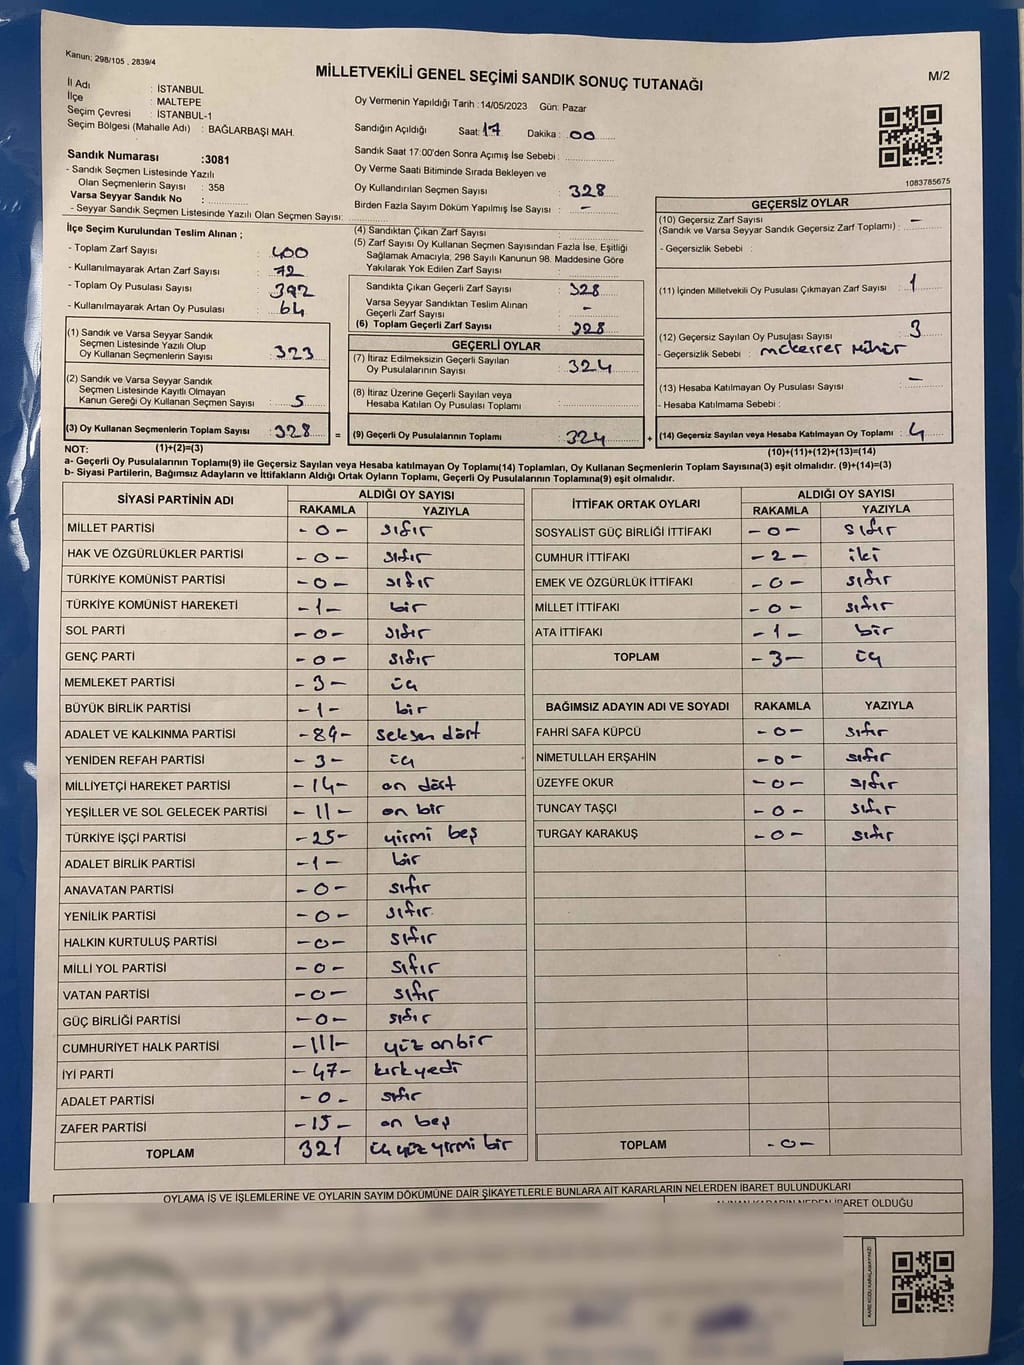 Kanun; 298/105 , 2839/4
MİLLETVEKİLİ GENEL SEÇİMİ SANDIK SONUÇ TUTANAĞI
M/2
İl Adı : İSTANBUL
İlçe : MALTEPE
Seçim Çevresi : İSTANBUL-1
Seçim Bölgesi (Mahalle Adı) : BAĞLARBAŞI MAH.
Sandık Numarası :3081
- Sandık Seçmen Listesinde Yazılı
Olan Seçmenlerin Sayısı : 358
Varsa Seyyar Sandık No :
- Seyyar Sandık Seçmen Listesinde Yazılı Olan Seçmen Sayısı:
Oy Vermenin Yapıldığı Tarih :14/05/2023 Gün: Pazar
Sandığın Açıldığı Saat: 17 Dakika : 00
Sandık Saat 17:00'den Sonra Açımış İse Sebebi :
Oy Verme Saati Bitiminde Sırada Bekleyen ve
Oy Kullandırılan Seçmen Sayısı 328
Birden Fazla Sayım Döküm Yapılmış İse Sayısı : -
1083785675
İlçe Seçim Kurulundan Teslim Alınan ;
- Toplam Zarf Sayısı : 400
- Kullanılmayarak Artan Zarf Sayısı : 72
- Toplam Oy Pusulası Sayısı : 392
- Kullanılmayarak Artan Oy Pusulası : 64
(1) Sandık ve Varsa Seyyar Sandık
Seçmen Listesinde Yazılı Olup
Oy Kullanan Seçmenlerin Sayısı : 323
(2) Sandık ve Varsa Seyyar Sandık
Seçmen Listesinde Kayıtlı Olmayan
Kanun Gereği Oy Kullanan Seçmen Sayısı : 5
(3) Oy Kullanan Seçmenlerin Toplam Sayısı : 328
(1)+(2)=(3)
(4) Sandıktan Çıkan Zarf Sayısı :
(5) Zarf Sayısı Oy Kullanan Seçmen Sayısından Fazla İse, Eşitliği
Sağlamak Amacıyla, 298 Sayılı Kanunun 98. Maddesine Göre
Yakılarak Yok Edilen Zarf Sayısı :
Sandıkta Çıkan Geçerli Zarf Sayısı : 328
Varsa Seyyar Sandıktan Teslim Alınan
Geçerli Zarf Sayısı : -
(6) Toplam Geçerli Zarf Sayısı : 328
GEÇERLİ OYLAR
(7) İtiraz Edilmeksizin Geçerli Sayılan
Oy Pusulalarının Sayısı : 324
(8) İtiraz Üzerine Geçerli Sayılan veya
Hesaba Katılan Oy Pusulası Toplamı :
= (9) Geçerli Oy Pusulalarının Toplamı : 324
GEÇERSİZ OYLAR
(10) Geçersiz Zarf Sayısı -
(Sandık ve Varsa Seyyar Sandık Geçersiz Zarf Toplamı) :
- Geçersizlik Sebebi :
(11) İçinden Milletvekili Oy Pusulası Çıkmayan Zarf Sayısı : 1
(12) Geçersiz Sayılan Oy Pusulası Sayısı : 3
- Geçersizlik Sebebi : mükerrer mühür
(13) Hesaba Katılmayan Oy Pusulası Sayısı : -
- Hesaba Katılmama Sebebi :
+ (14) Geçersiz Sayılan veya Hesaba Katılmayan Oy Toplamı : 4
(10)+(11)+(12)+(13)=(14)
NOT:
a- Geçerli Oy Pusulalarının Toplamı(9) ile Geçersiz Sayılan veya Hesaba katılmayan Oy Toplamı(14) Toplamları, Oy Kullanan Seçmenlerin Toplam Sayısına(3) eşit olmalıdır. (9)+(14)=(3)
b- Siyasi Partilerin, Bağımsız Adayların ve İttifakların Aldığı Ortak Oyların Toplamı, Geçerli Oy Pusulalarının Toplamına(9) eşit olmalıdır.
SİYASİ PARTİNİN ADI ALDIĞI OY SAYISI
RAKAMLA YAZIYLA
MİLLET PARTİSİ -0- sıfır
HAK VE ÖZGÜRLÜKLER PARTİSİ -0- sıfır
TÜRKİYE KOMÜNİST PARTİSİ -0- sıfır
TÜRKİYE KOMÜNİST HAREKETİ -1- bir
SOL PARTİ -0- sıfır
GENÇ PARTİ -0- sıfır
MEMLEKET PARTİSİ -3- üç
BÜYÜK BİRLİK PARTİSİ -1- bir
ADALET VE KALKINMA PARTİSİ -84- seksen dört
YENİDEN REFAH PARTİSİ -3- üç
MİLLİYETÇİ HAREKET PARTİSİ -14- on dört
YEŞİLLER VE SOL GELECEK PARTİSİ -11- on bir
TÜRKİYE İŞÇİ PARTİSİ -25- yirmi beş
ADALET BİRLİK PARTİSİ -1- bir
ANAVATAN PARTİSİ -0- sıfır
YENİLİK PARTİSİ -0- sıfır
HALKIN KURTULUŞ PARTİSİ -0- sıfır
MİLLİ YOL PARTİSİ -0- sıfır
VATAN PARTİSİ -0- sıfır
GÜÇ BİRLİĞİ PARTİSİ -0- sıfır
CUMHURİYET HALK PARTİSİ -111- yüz onbir
İYİ PARTİ -47- kırkyedi
ADALET PARTİSİ -0- sıfır
ZAFER PARTİSİ -15- on beş
TOPLAM 321 üç yüz yirmi bir
İTTİFAK ORTAK OYLARI ALDIĞI OY SAYISI
RAKAMLA YAZIYLA
SOSYALİST GÜÇ BİRLİĞİ İTTİFAKI -0- sıfır
CUMHUR İTTİFAKI -2- iki
EMEK VE ÖZGÜRLÜK İTTİFAKI -0- sıfır
MİLLET İTTİFAKI -0- sıfır
ATA İTTİFAKI -1- bir
TOPLAM -3- üç
BAĞIMSIZ ADAYIN ADI VE SOYADI RAKAMLA YAZIYLA
FAHRİ SAFA KÜPCÜ -0- sıfır
NİMETULLAH ERŞAHİN -0- sıfır
ÜZEYFE OKUR -0- sıfır
TUNCAY TAŞÇI -0- sıfır
TURGAY KARAKUŞ -0- sıfır
TOPLAM -0-
OYLAMA İŞ VE İŞLEMLERİNE VE OYLARIN SAYIM DÖKÜMÜNE DAİR ŞİKAYETLERLE BUNLARA AİT KARARLARIN NELERDEN İBARET BULUNDUKLARI
ALINAN KARARIN NEDEN İBARET OLDUĞU